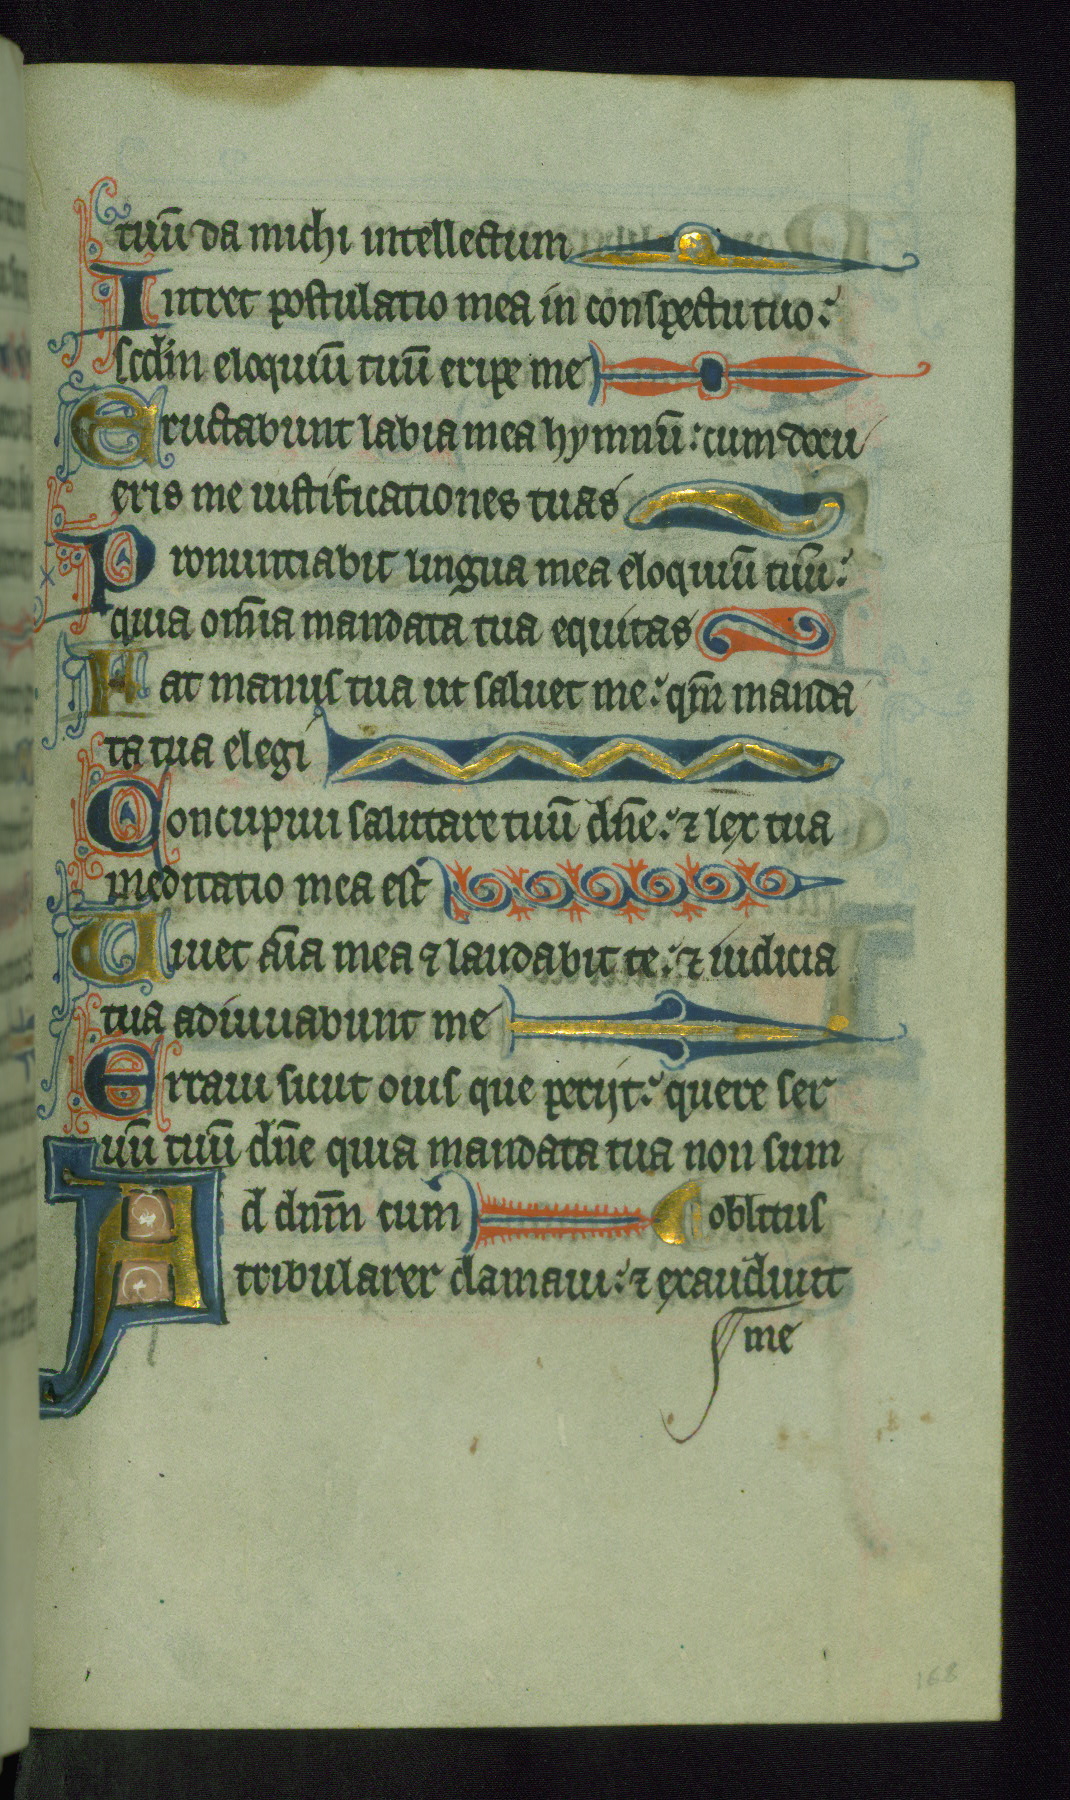 tuū da michi intellectum
Intret postulatio mea in conspectu tuo:
scd̄m eloquiū tuū eripe me
Eructabunt labia mea hymnū: cum docu
eris me iustificationes tuas
Pronunciabit lingua mea eloquiū tuū:
quia om̄ia mandata tua equitas
Fiat manus tua ut saluet me: qm̄ manda
ta tua elegi
Concupiui salutare tuū dn̄e: ⁊ lex tua
meditatio mea est
Uiuet aīa mea ⁊ laudabit te: ⁊ iudicia
tua adiuuabunt me
Erraui sicut ouis que perijt: quere ser
uū tuū dn̄e quia mandata tua non sum
Ad dnm̄ cum oblitus
tribularer clamaui: ⁊ exaudiuit
me
168